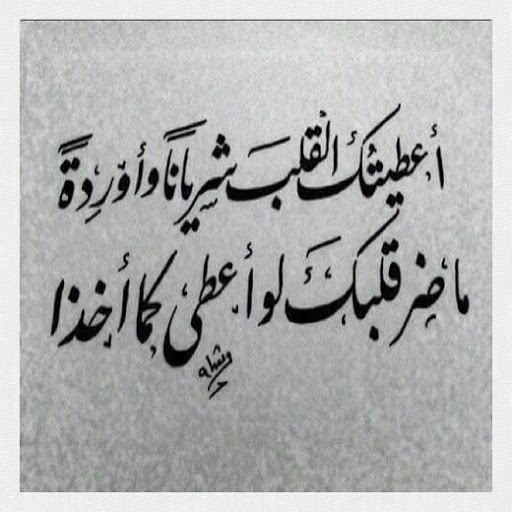 أعطيتك القلبَ شريانًا وأوْرِدةً
ما ضر قلبكَ لو أعطى كما أخذا